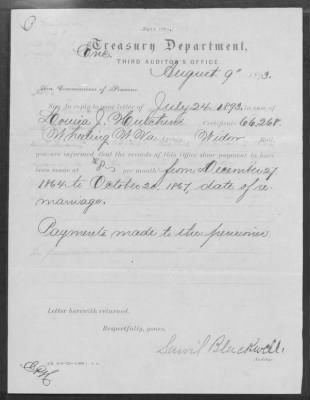 Treasury Department,
THIRD AUDITOR'S OFFICE,
August 9" 1893.
Hon. Commissioner of Pensions
Sir: In reply to your letter of July 24 1893, in case of
Louisa J. Certificate 66,268.
Wheeling W. Va. Agency, Widow Roll,
you are informed that the records of this office show payment to have
been made at $8 per month from December 27
1864 to October 20, 1867, date of re
marriage.
Payments made to the pensioner
Letter herewith returned.
Respectfully, yours,
Sam'l Blackwell,
Auditor.